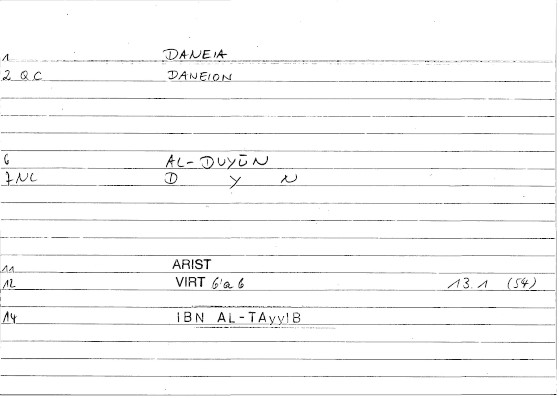 1 DANEIA
2 QC DANEION
6 AL-DUYŪN
7 NL D Y N
11 ARIST
12 VIRT 6'a 6 13.1 (54)
14 IBN AL-TAyyIB